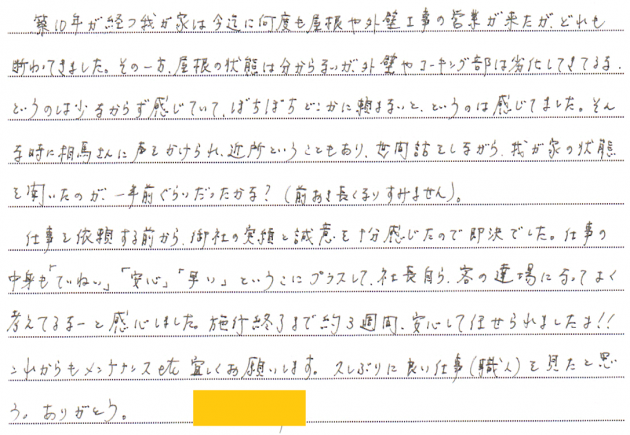 築10年が経つ我が家は今迄に何度も屋根や外壁工事の営業が来たが、どれも
断わってきました。その一方、屋根の状態は分からないが、外壁やコーキング部は劣化してきてる、
というのは少なからず感じていて、ぼちぼちどこかに頼まないと、というのは感じてました。そん
な時に相馬さんに声をかけられ、近所ということもあり、世間話をしながら、我が家の状態
を聞いたのが、一年前ぐらいだったかな？（前おき長くなりすみません）。
仕事を依頼する前から、御社の実績と誠意を十分感じたので即決でした。仕事の
中身も「ていねい」「安心」「早い」というこにプラスして、社長自ら、客の立場になってよく
考えてるなーと感心しました。施行終了まで約3週間、安心して任せられましたよ!!
これからもメンテナンスetc 宜しくお願いします。久しぶりに良い仕事（職人）を見たと思
う。ありがとう。